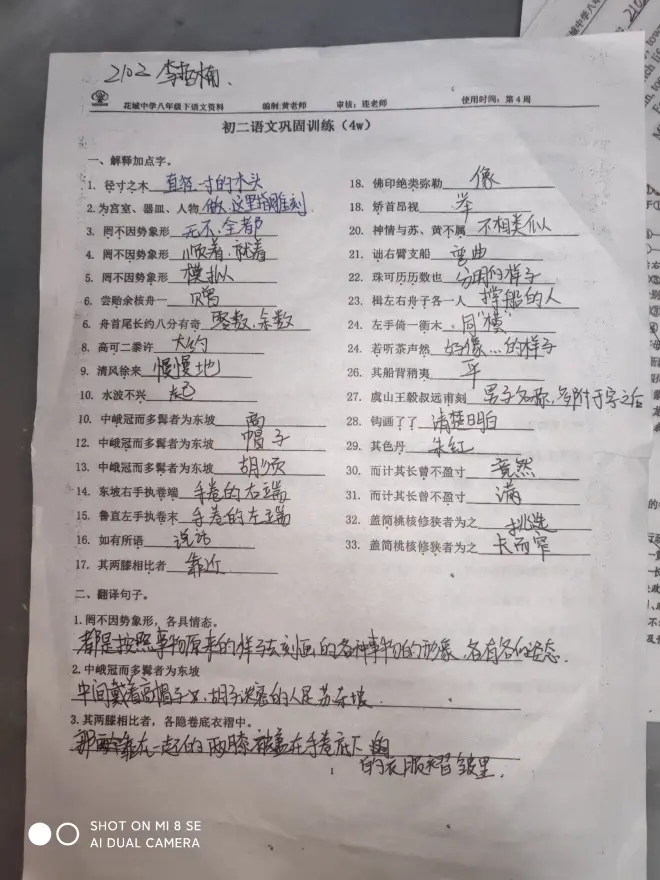 2102 李哲楠.
花城中学八年级下语文资料 编制:黄老师 审核：连老师 使用时间：第4周
初二语文巩固训练（4w）
一、解释加点字。
1. 径寸之木 直径一寸的木头
2. 为宫室、器皿、人物 做,这里指雕刻
3. 罔不因势象形 无不,全都
4. 罔不因势象形 顺着,就着
5. 罔不因势象形 模拟
6. 尝贻余核舟一 赠
6. 舟首尾长约八分有奇 零数,余数
8. 高可二黍许 大约
9. 清风徐来 慢慢地
10. 水波不兴 起
10. 中峨冠而多髯者为东坡 高
12. 中峨冠而多髯者为东坡 帽子
13. 中峨冠而多髯者为东坡 胡须
14. 东坡右手执卷端 手卷的右端
15. 鲁直左手执卷末 手卷的左端
16. 如有所语 说话
17. 其两膝相比者 靠近
18. 佛印绝类弥勒 像
18. 矫首昂视 举
20. 神情与苏、黄不属 不相类似
21. 诎右臂支船 弯曲
22. 珠可历历数也 分明的样子
23. 楫左右舟子各一人 撑船的人
24. 左手倚一衡木 同"横"
24. 若听茶声然 好像…的样子
26. 其船背稍夷 平
27. 虞山王毅叔远甫刻 男子名称,多附于字之后
28. 钩画了了 清楚明白
29. 其色丹 朱红
30. 而计其长曾不盈寸 竟然
31. 而计其长曾不盈寸 满
32. 盖简桃核修狭者为之 挑选
33. 盖简桃核修狭者为之 长而窄
二、翻译句子。
1. 罔不因势象形，各具情态。
都是按照事物原来的样子去刻画的各种事物的形象,各有各的姿态.
2. 中峨冠而多髯者为东坡
中间戴着高帽子,胡子浓密的人是苏东坡
3. 其两膝相比者，各隐卷底衣褶中。
靠在一起的两膝被盖在手卷底下
的衣服褶皱里.
SHOT ON MI 8 SE
AI DUAL CAMERA